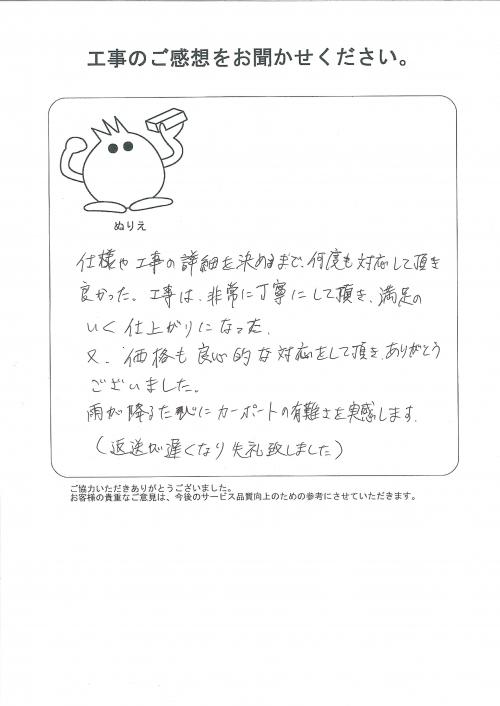 工事のご感想をお聞かせください。
ぬりえ
仕様や工事の詳細を決めるまで、何度も対応して頂き
良かった。工事は、非常に丁寧にして頂き、満足の
いく仕上がりになった。
又、価格も良心的な対応をして頂き、ありがとう
ございました。
雨が降るたびにカーポートの有難さを実感します。
(返送が遅くなり失礼致しました)
ご協力いただきありがとうございました。
お客様の貴重なご意見は、今後のサービス品質向上のための参考にさせていただきます。